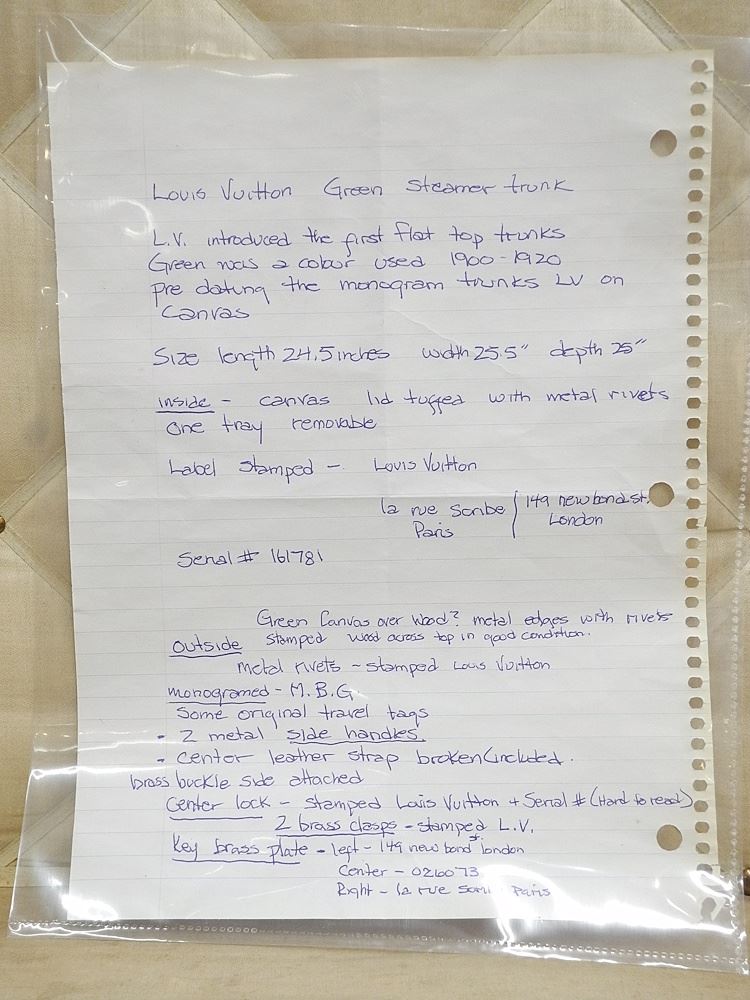 Louis Vuitton Green Steamer trunk
L.V. introduced the first flat top trunks
Green was a colour used 1900-1920
pre dating the monogram trunks LV on
Canvas
Size length 24,5 inches width 25.5" depth 25"
inside - canvas lid tugged with metal rivets
one tray removable
Label Stamped - Louis Vuitton
la rue Scribe / 149 new bond st.
Paris London
Serial # 161781
Green Canvas over wood? metal edges with rivets
outside stamped wood across top in good condition.
metal rivets - stamped Louis Vuitton
monogramed - M.B.G.
Some original travel tags
- 2 metal side handles.
- center leather strap broken (included.
brass buckle side attached
Center lock - stamped Louis Vuitton + Serial # (Hard to read)
2 brass clasps - stamped L.V.
Key brass plate - left - 149 new bond st. london
Center - 026073
Right - la rue Paris